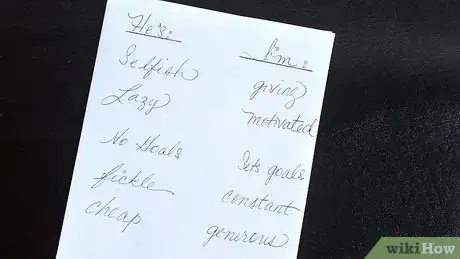 He's: I'm:
Selfish giving
Lazy motivated
No Goals Sets goals
fickle constant
cheap generous
wikiHow